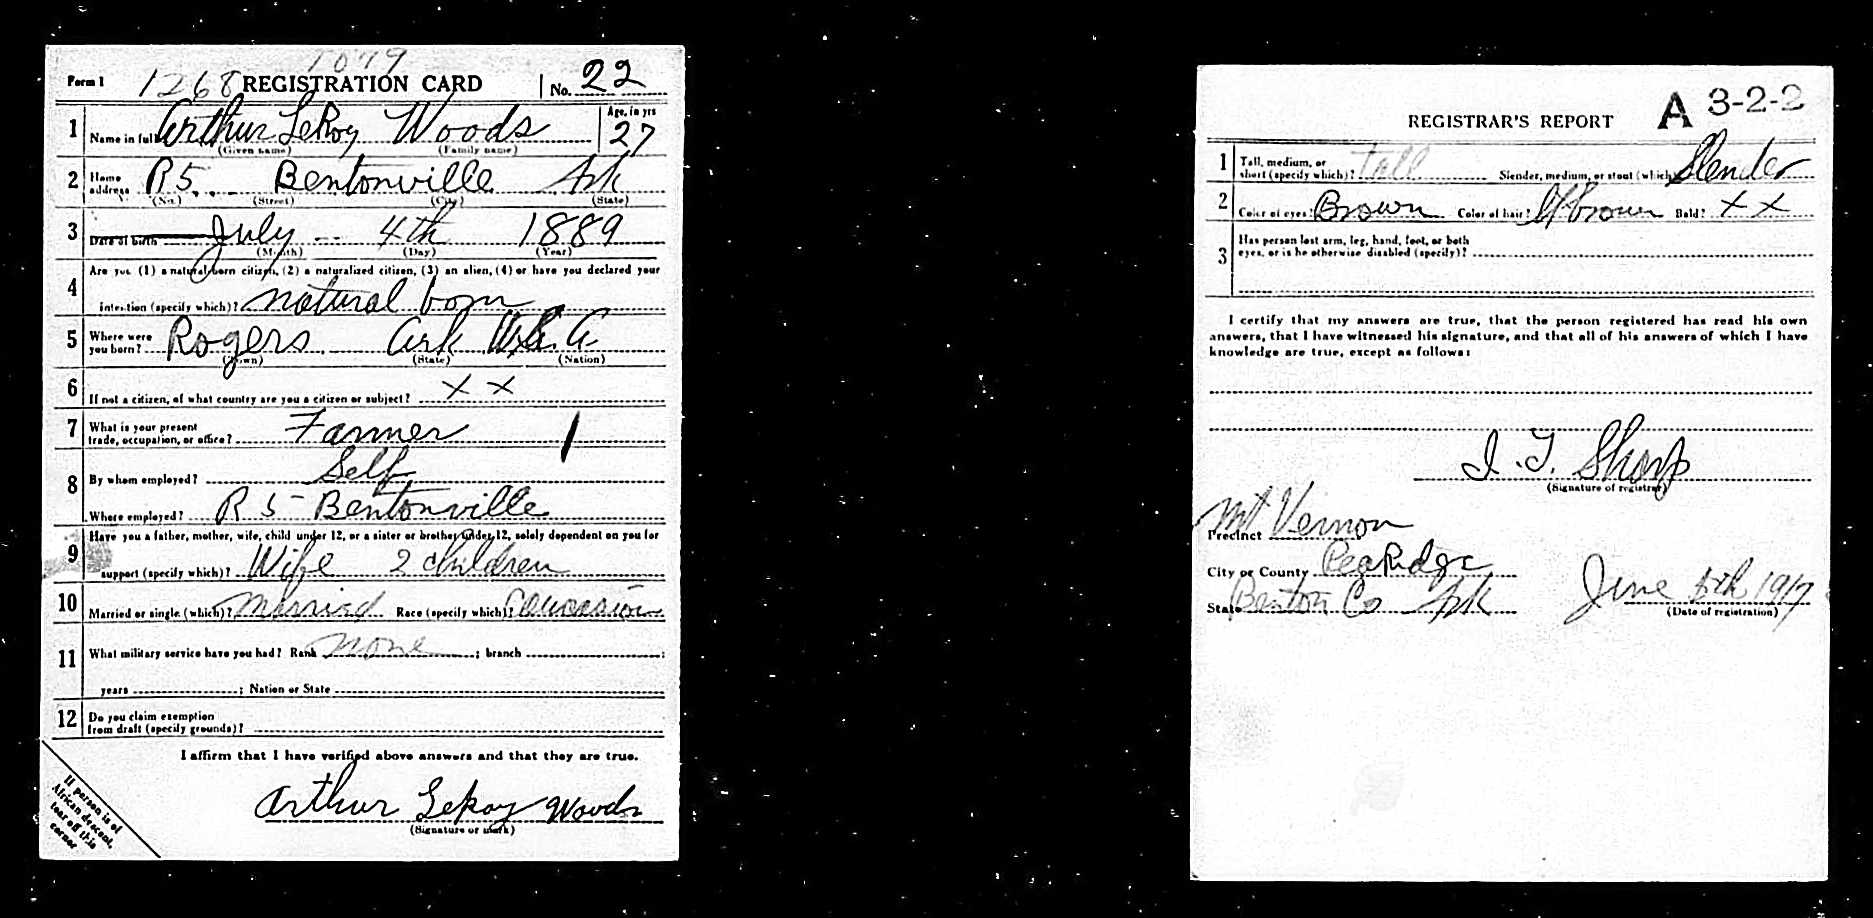 1079
Form 1 1268 REGISTRATION CARD No. 22
1 Name in full Arthur LeRoy Woods Age, in yrs 27
(Given name) (Family name)
2 Home address R 5 Bentonville Ark
(No.) (Street) (City) (State)
3 Date of birth July 4th 1889
(Month) (Day) (Year)
4 Are you (1) a natural-born citizen, (2) a naturalized citizen, (3) an alien, (4) or have you declared your
intention (specify which)? natural born
5 Where were you born? Rogers Ark U.S. A
(Town) (State) (Nation)
6 If not a citizen, of what country are you a citizen or subject? X X
7 What is your present
trade, occupation, or office? Farmer
8 By whom employed? Self
Where employed? R 5 Bentonville
9 Have you a father, mother, wife, child under 12, or a sister or brother under 12, solely dependent on you for
support (specify which)? Wife 2 children
10 Married or single (which)? Married Race (specify which)? Caucasion
11 What military service have you had? Rank none ; branch ;
years ; Nation or State
12 Do you claim exemption
from draft (specify grounds)?
I affirm that I have verified above answers and that they are true.
Arthur LeRoy Woods
(Signature or mark)
If person is of
African descent,
tear off this
corner
A 3-2-2
REGISTRAR'S REPORT
1 Tall, medium, or
short (specify which)? Tall Slender, medium, or stout (which)? Slender
2 Color of eyes? Brown Color of hair? brown Bald? X X
3 Has person lost arm, leg, hand, foot, or both
eyes, or is he otherwise disabled (specify)?
I certify that my answers are true, that the person registered has read his own
answers, that I have witnessed his signature, and that all of his answers of which I have
knowledge are true, except as follows:
I. T. Sharp
(Signature of registrar)
Precinct Mt Vernon
City or County PeaRidge
State Benton Co Ark June 5th 1917
(Date of registration)